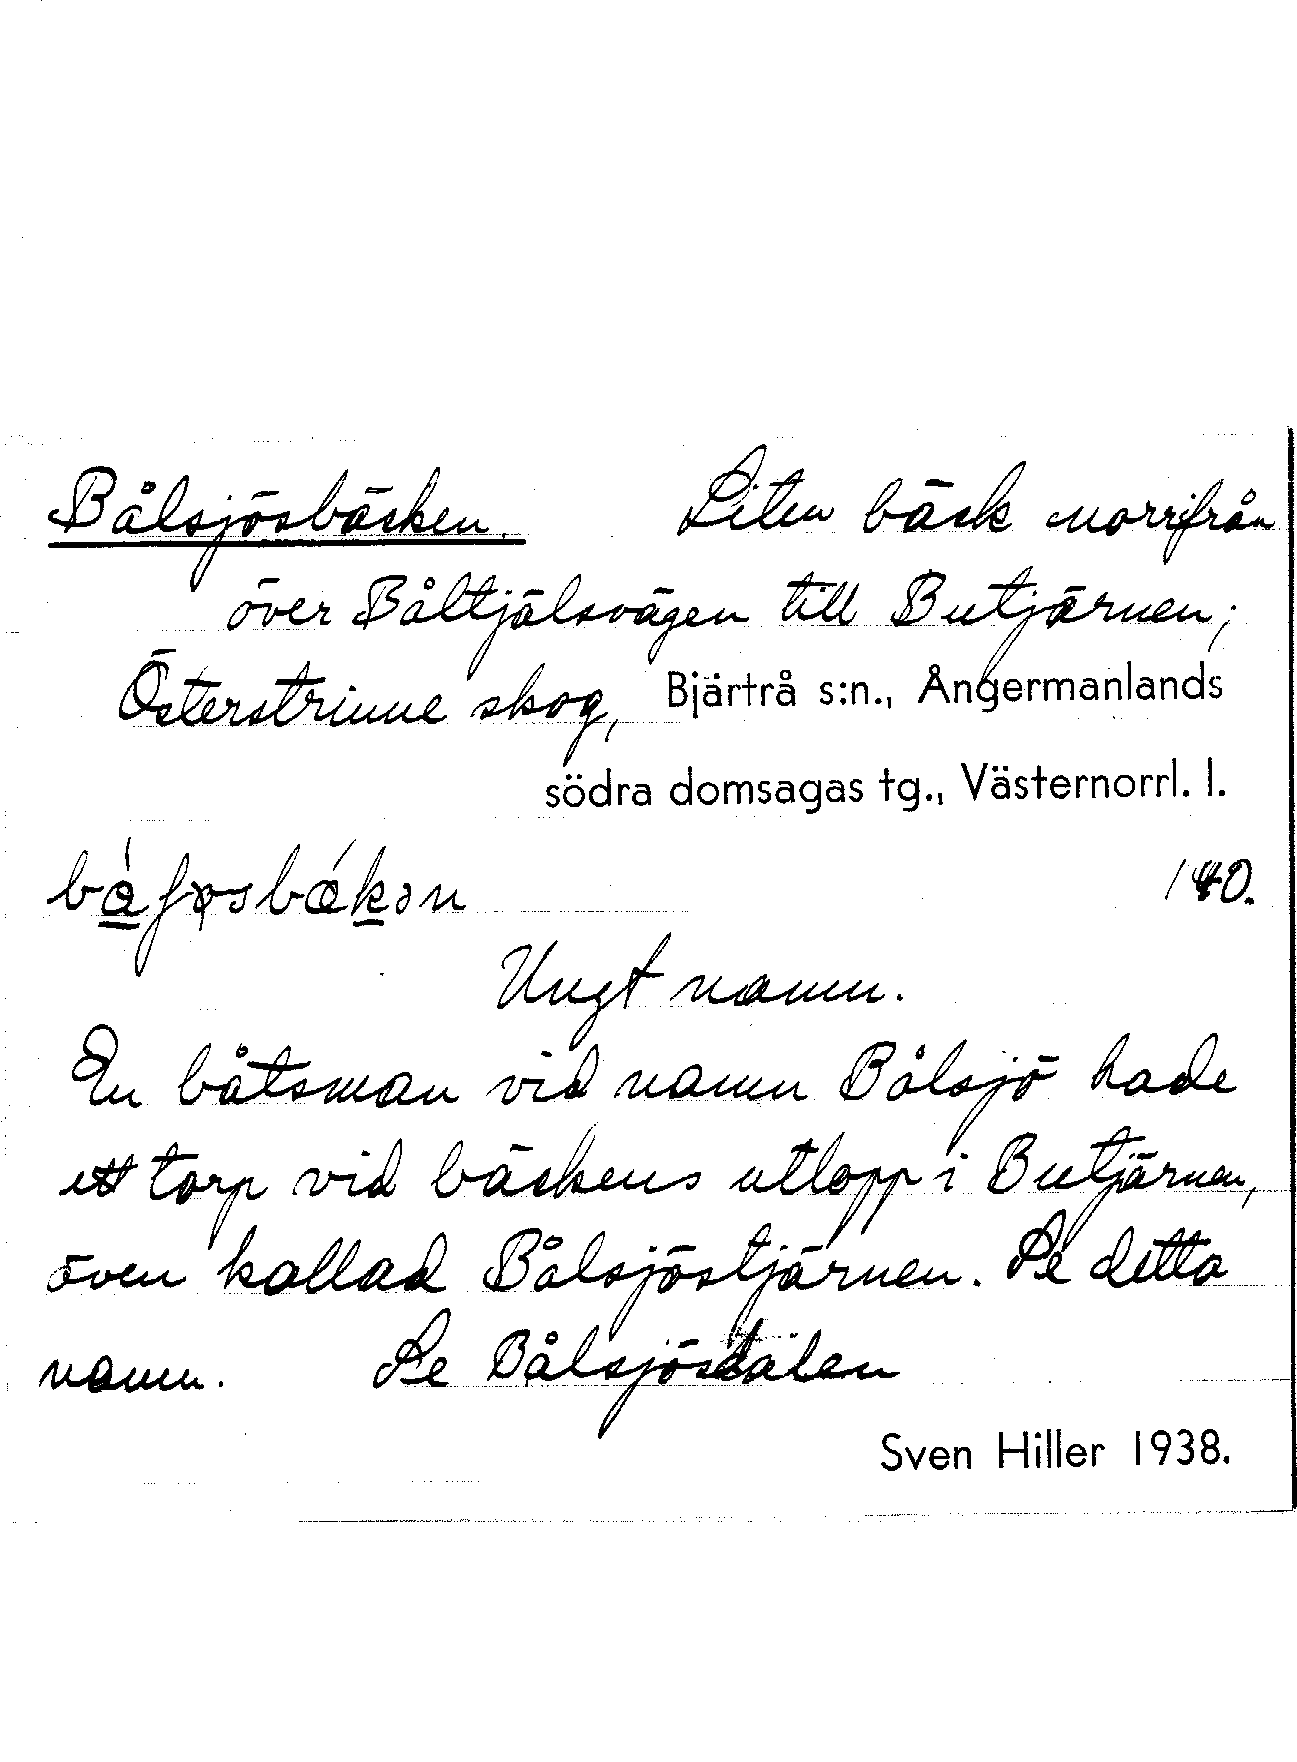 Bålsjösbäcken. Liten bäck norrifrån
över Båltjälsvägen till Butjärnen;
Österstrinne skog, Bjärtrå s:n., Ångermanlands
södra domsagas tg., Västernorrl. l.
140.
Ungt namn.
En båtsman vid namn Bålsjö hade
ett torp vid bäckens utlopp i Butjärnen,
även kallad Bålsjöstjärnen. Se detta
namn. Se Bålsjösdalen
Sven Hiller 1938.